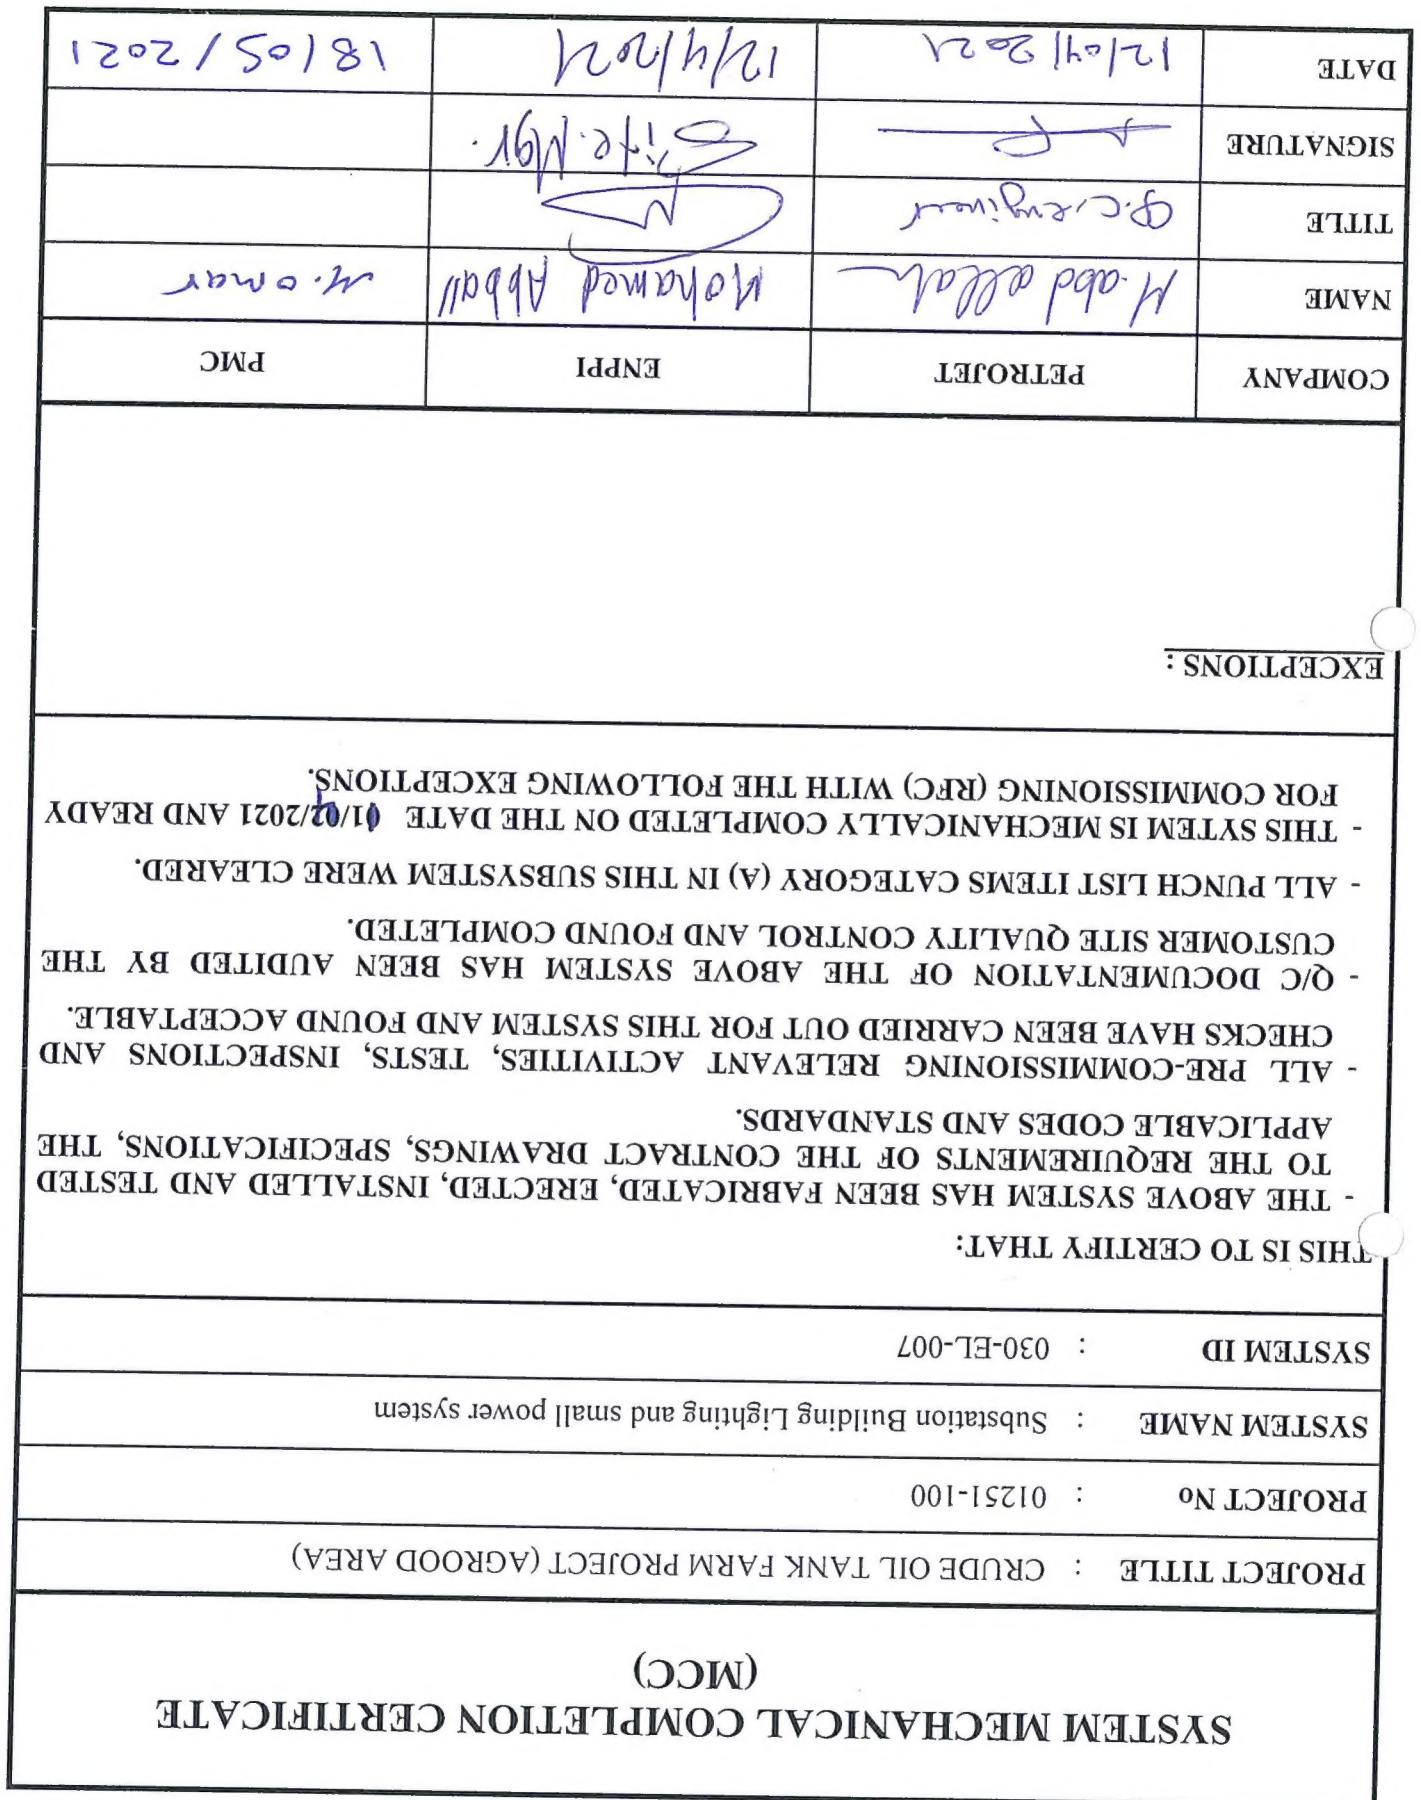 SYSTEM MECHANICAL COMPLETION CERTIFICATE
(MCC)
PROJECT TITLE : CRUDE OIL TANK FARM PROJECT (AGROOD AREA)
PROJECT No : 01251-100
SYSTEM NAME : Substation Building Lighting and small power system
SYSTEM ID : 030-EL-007
THIS IS TO CERTIFY THAT:
- THE ABOVE SYSTEM HAS BEEN FABRICATED, ERECTED, INSTALLED AND TESTED
TO THE REQUIREMENTS OF THE CONTRACT DRAWINGS, SPECIFICATIONS, THE
APPLICABLE CODES AND STANDARDS.
- ALL PRE-COMMISSIONING RELEVANT ACTIVITIES, TESTS, INSPECTIONS AND
CHECKS HAVE BEEN CARRIED OUT FOR THIS SYSTEM AND FOUND ACCEPTABLE.
- Q/C DOCUMENTATION OF THE ABOVE SYSTEM HAS BEEN AUDITED BY THE
CUSTOMER SITE QUALITY CONTROL AND FOUND COMPLETED.
- ALL PUNCH LIST ITEMS CATEGORY (A) IN THIS SUBSYSTEM WERE CLEARED.
- THIS SYTEM IS MECHANICALLY COMPLETED ON THE DATE /2021 AND READY
FOR COMMISSIONING (RFC) WITH THE FOLLOWING EXCEPTIONS.
EXCEPTIONS :
COMPANY PETROJET ENPPI PMC
NAME M.abd allah Mohamed M. omar
TITLE engineer
SIGNATURE Site.Mgr.
DATE 12/04/2021 12/4/2021 18/05/2021